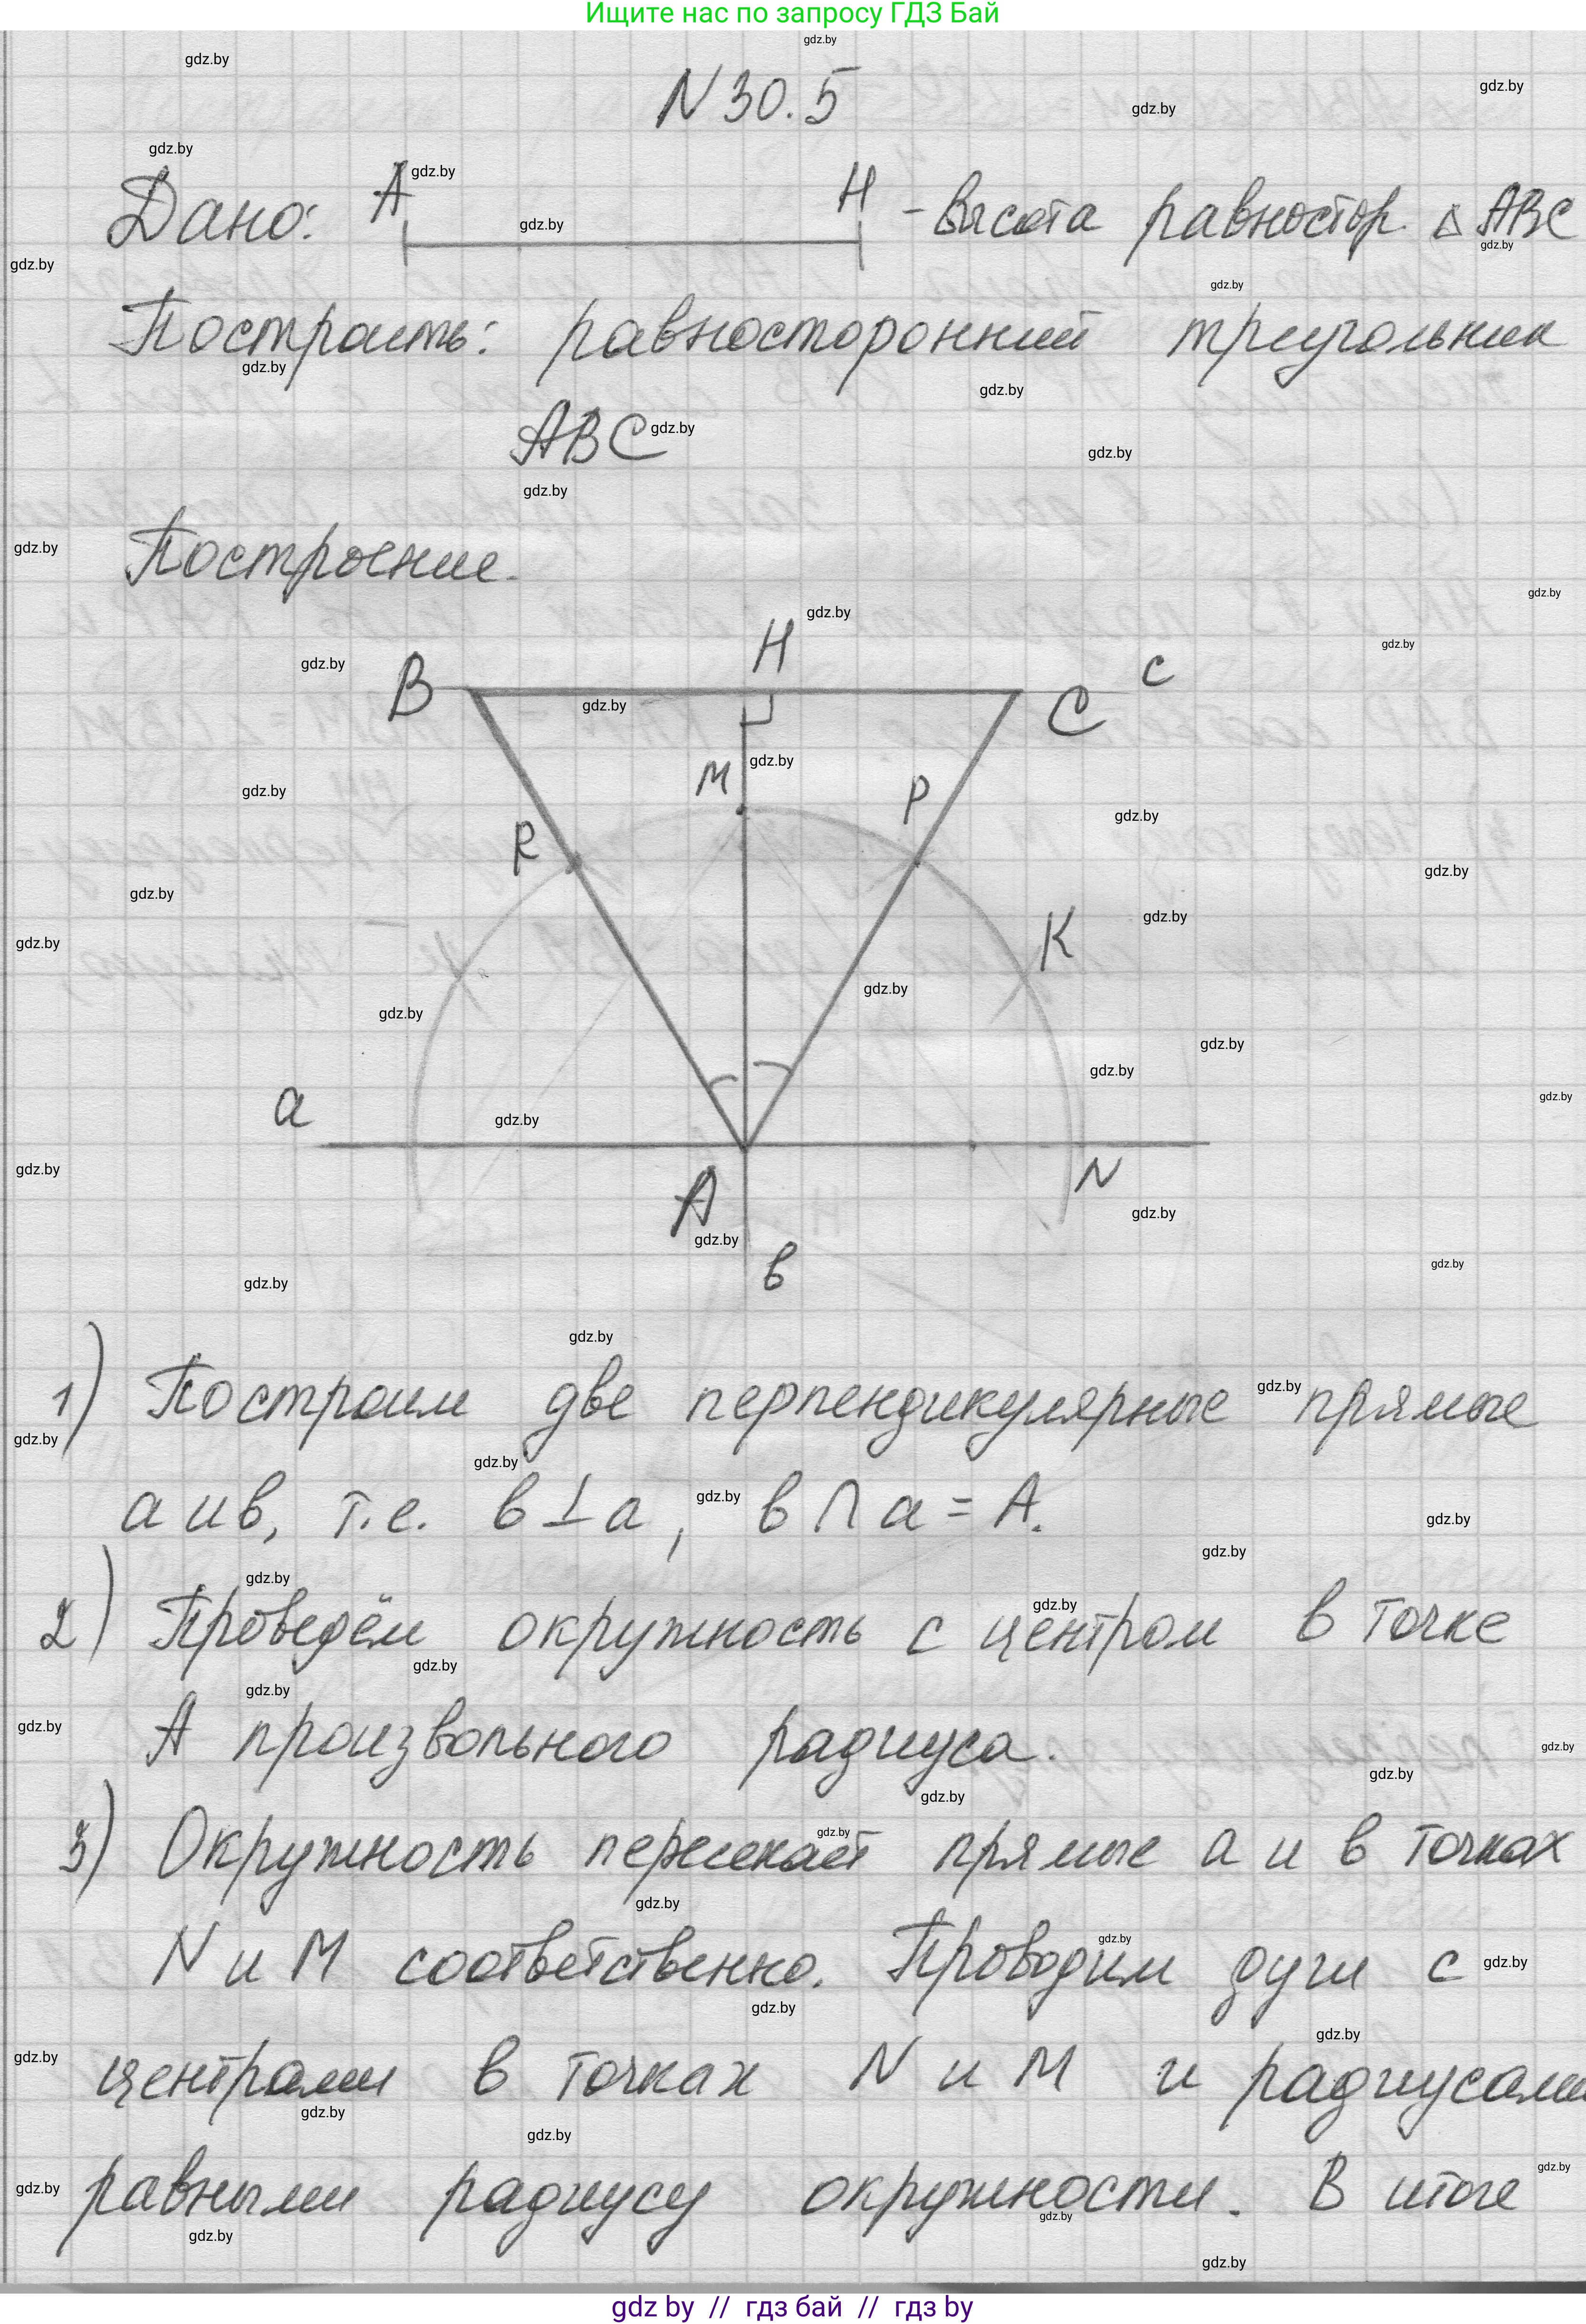 Ищите нас по запросу ГДЗ Бай
N 30.5
Дано: A H - высота равностор. △ ABC
Построить: равносторонний треугольник
ABC
Построение.
B H C c
M P
R
K
a
A N
в
1) Построим две перпендикулярные прямые
а и в, т.е. в ⊥ а, в ∩ а = А.
2) Проведём окружность с центром в точке
А произвольного радиуса.
3) Окружность пересекает прямые а и в точках
N и M соответственно. Проводим дуги с
центрами в точках N и M и радиусами
равными радиусу окружности. В итоге
gdz by // гдз бай // гдз by